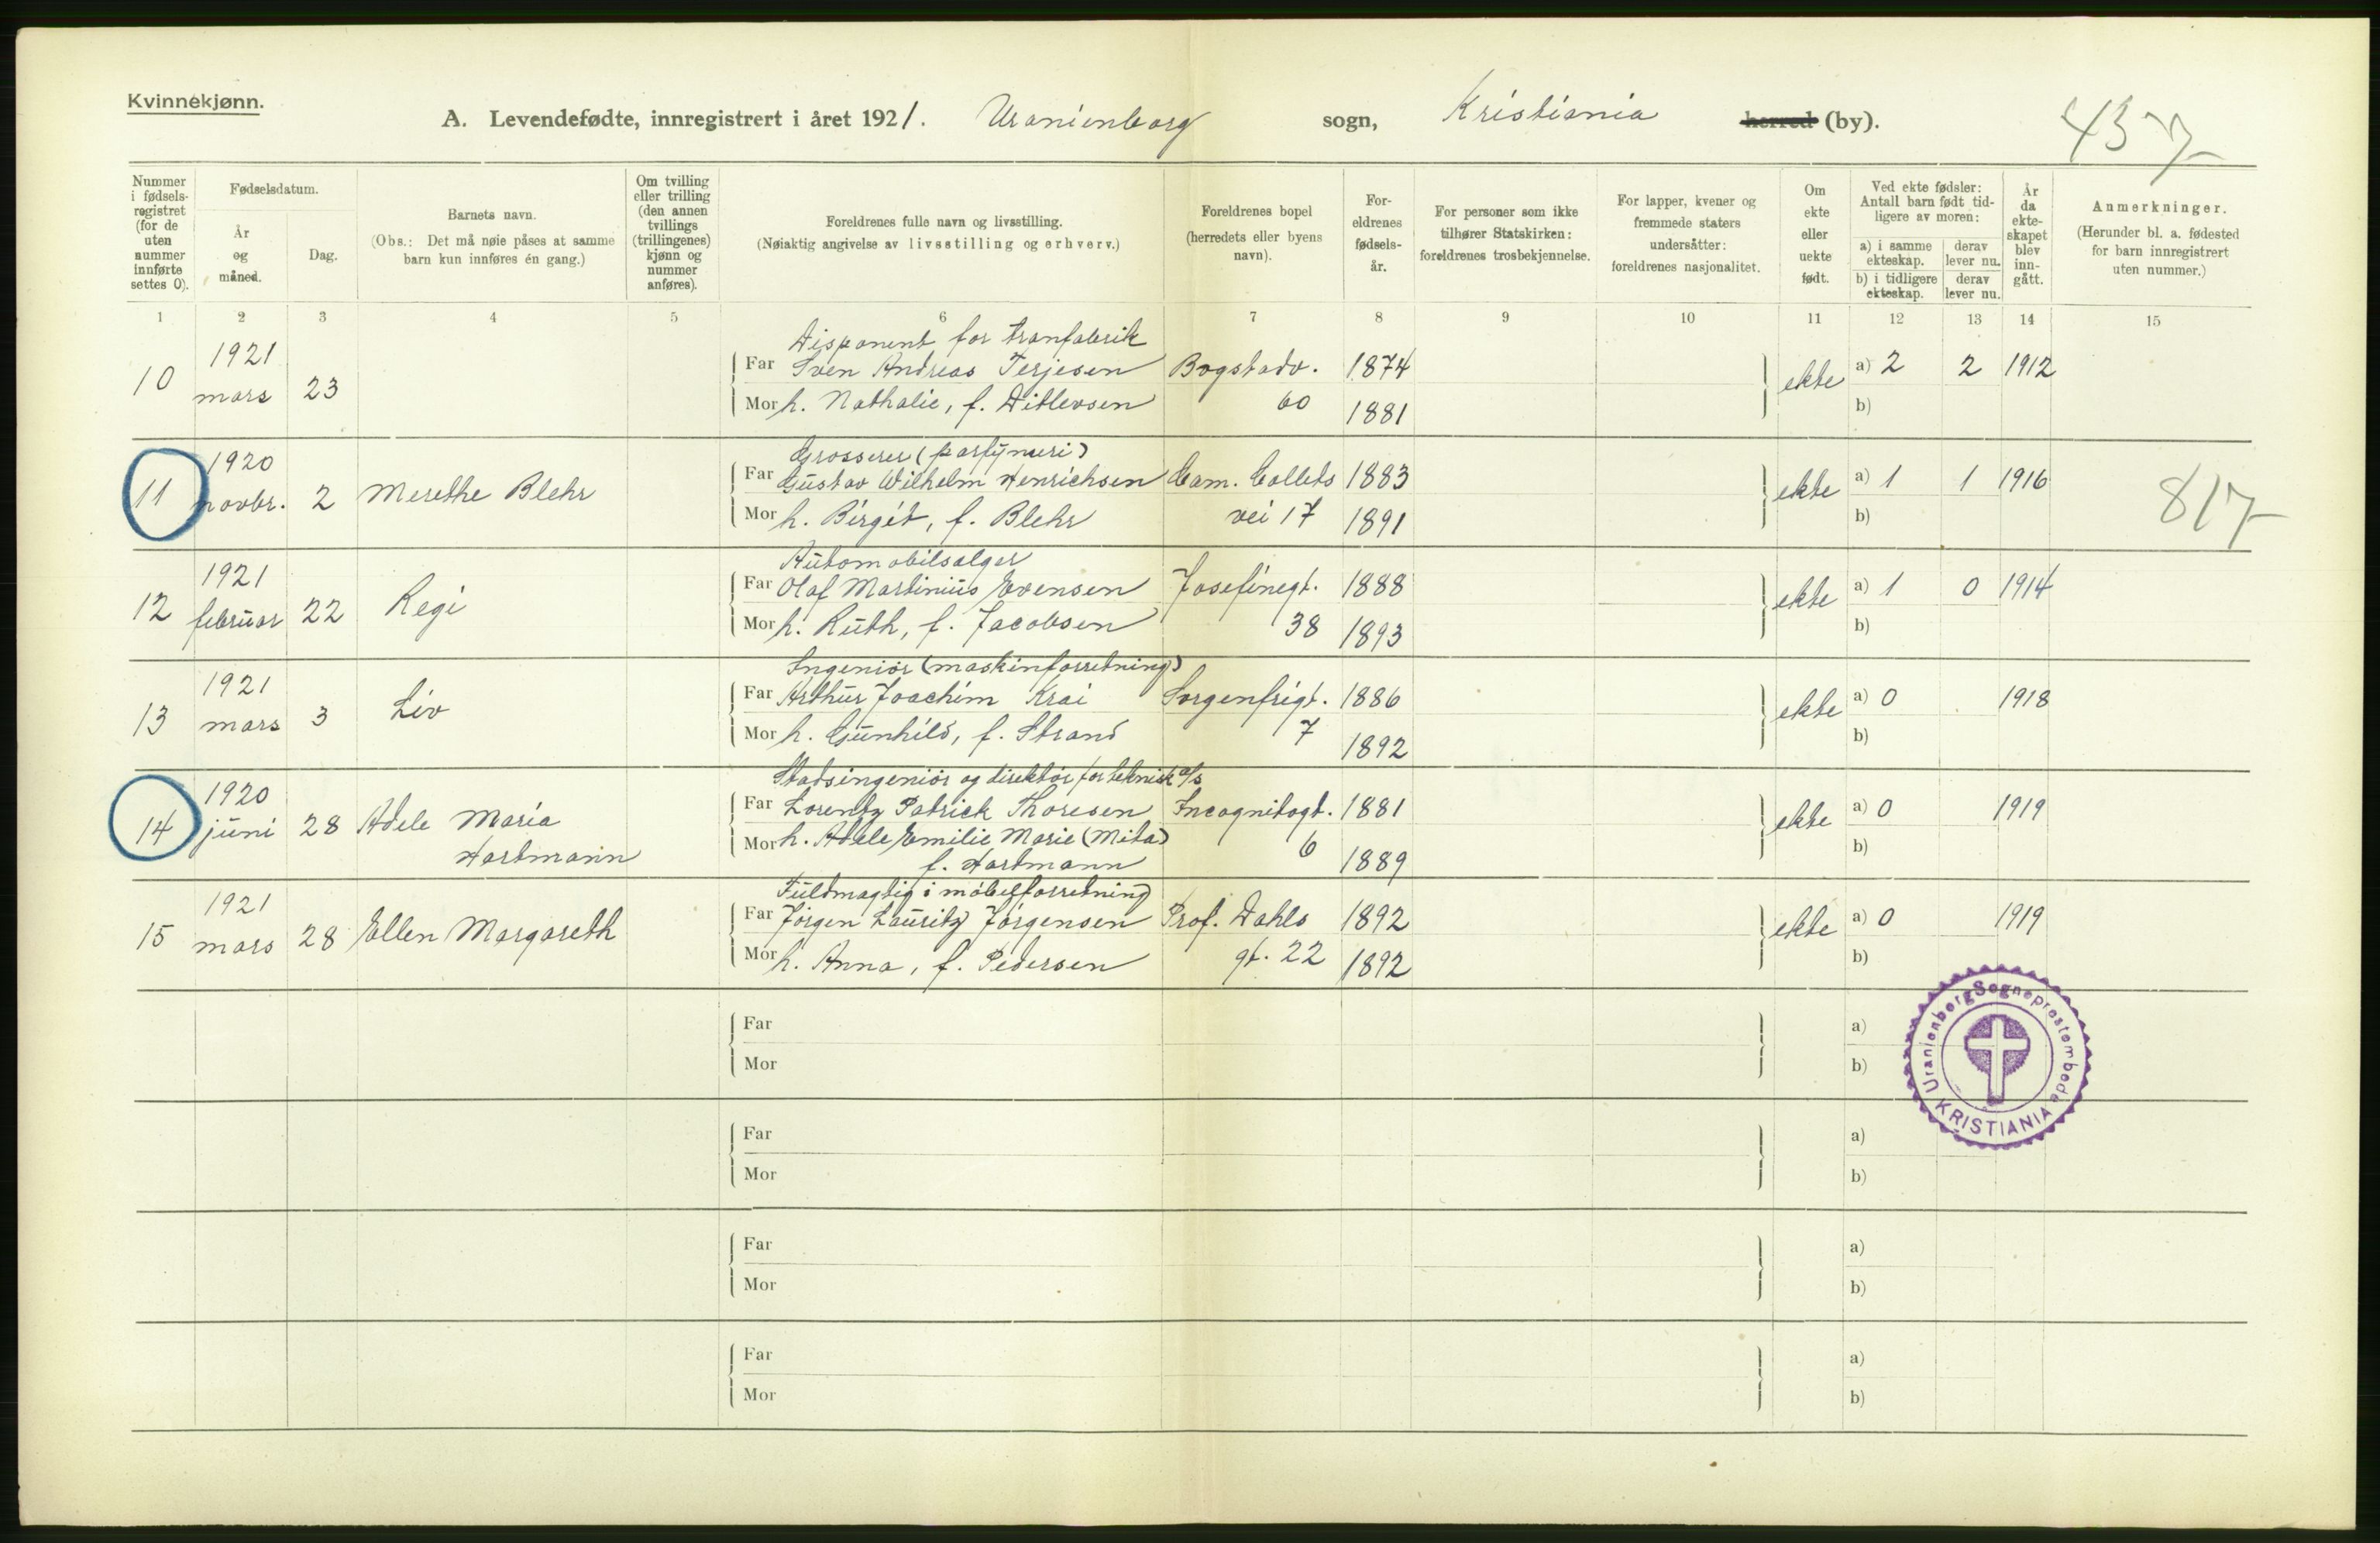 Kvinnekjønn.
A. Levendefødte, innregistrert i året 1921. Uranienborg sogn, Kristiania herred (by).
437
Nummer i fødsels-registret (for de uten nummer innførte settes 0).
Fødselsdatum.
År og måned.
Dag.
Barnets navn.
(Obs.: Det må nøie påses at samme barn kun innføres én gang.)
Om tvilling eller trilling (den annen tvillings (trillingenes) kjønn og nummer anføres).
Foreldrenes fulle navn og livsstilling.
(Nøiaktig angivelse av livsstilling og erhverv.)
Foreldrenes bopel (herredets eller byens navn).
For-eldrenes fødsels-år.
For personer som ikke tilhører Statskirken: foreldrenes trosbekjennelse.
For lapper, kvener og fremmede staters undersåtter: foreldrenes nasjonalitet.
Om ekte eller uekte født.
Ved ekte fødsler: Antall barn født tid-ligere av moren:
a) i samme ekteskap. derav lever nu.
b) i tidligere ekteskap. derav lever nu.
År da ekte-skapet blev inn-gått.
Anmerkninger.
(Herunder bl. a. fødested for barn innregistrert uten nummer.)
1 2 3 4 5 6 7 8 9 10 11 12 13 14 15
Disponent for tranfabrik
10 1921 mars 23 Far Sven Andreas Terjesen Bogstadv. 1874 ekte a) 2 2 1912
Mor h. Nathalie, f. Ditlevsen 60 1881 b)
Grosserer (parfymeri)
11 1920 novbr. 2 Merethe Blehr Far Gustav Wilhelm Henrichsen Cam. Collets 1883 ekte a) 1 1 1916 817
Mor h. Birgit, f. Blehr vei 17 1891 b)
Automobilselger
12 1921 februar 22 Regi Far Olaf Martinius Evensen Josefinegt. 1888 ekte a) 1 0 1914
Mor h. Ruth, f. Jacobsen 38 1893 b)
Ingeniør (maskinforretning)
13 1921 mars 3 Liv Far Arthur Joachim Krai Sorgenfrigt. 1886 ekte a) 0 1918
Mor h. Gunhild, f. Strand 7 1892 b)
Stadsingeniør og direktør for teknisk a/s
14 1920 juni 28 Adele Maria Hartmann Far Lorentz Patrick Thoresen Incognitogt. 1881 ekte a) 0 1919
Mor h. Adele Emilie Marie (Mita) 6 1889 b)
f. Hartmann
Fuldmægtig i møbelforretning
15 1921 mars 28 Ellen Margareth Far Jörgen Lauritz Jörgensen Prof. Dahls 1892 ekte a) 0 1919
Mor h. Anna, f. Pedersen gt. 22 1892 b)
Uranienborg Sogneprestembede KRISTIANIA
Far a)
Mor b)
Far a)
Mor b)
Far a)
Mor b)
Far a)
Mor b)